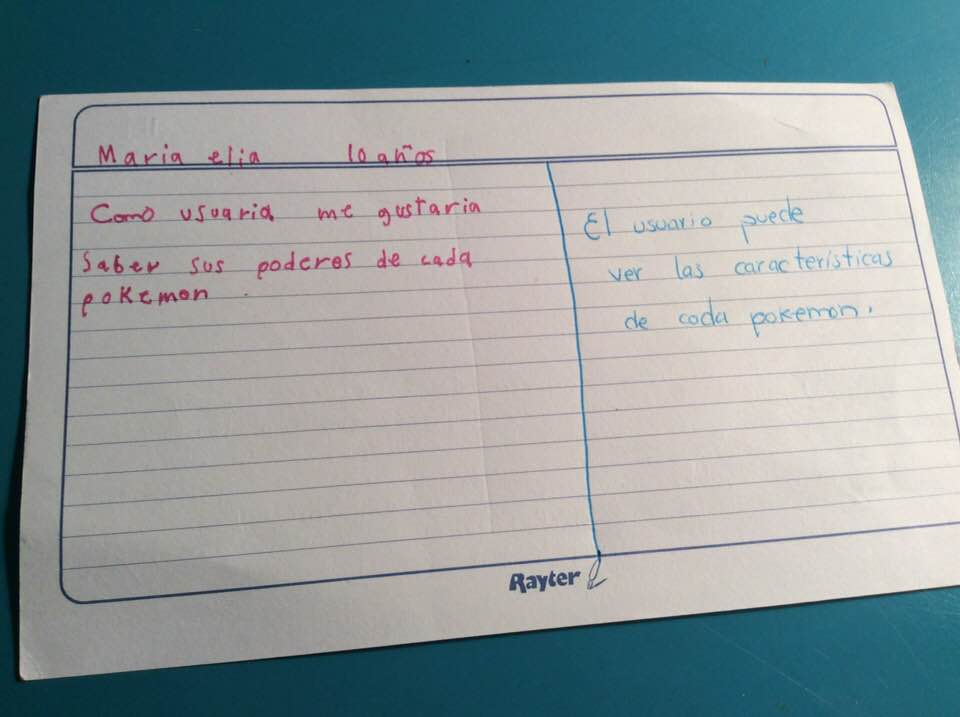 Maria elia 10 años
Como usuaria me gustaria
Saber sus poderes de cada
pokemon.
El usuario puede
ver las características
de cada pokemon.
Rayter